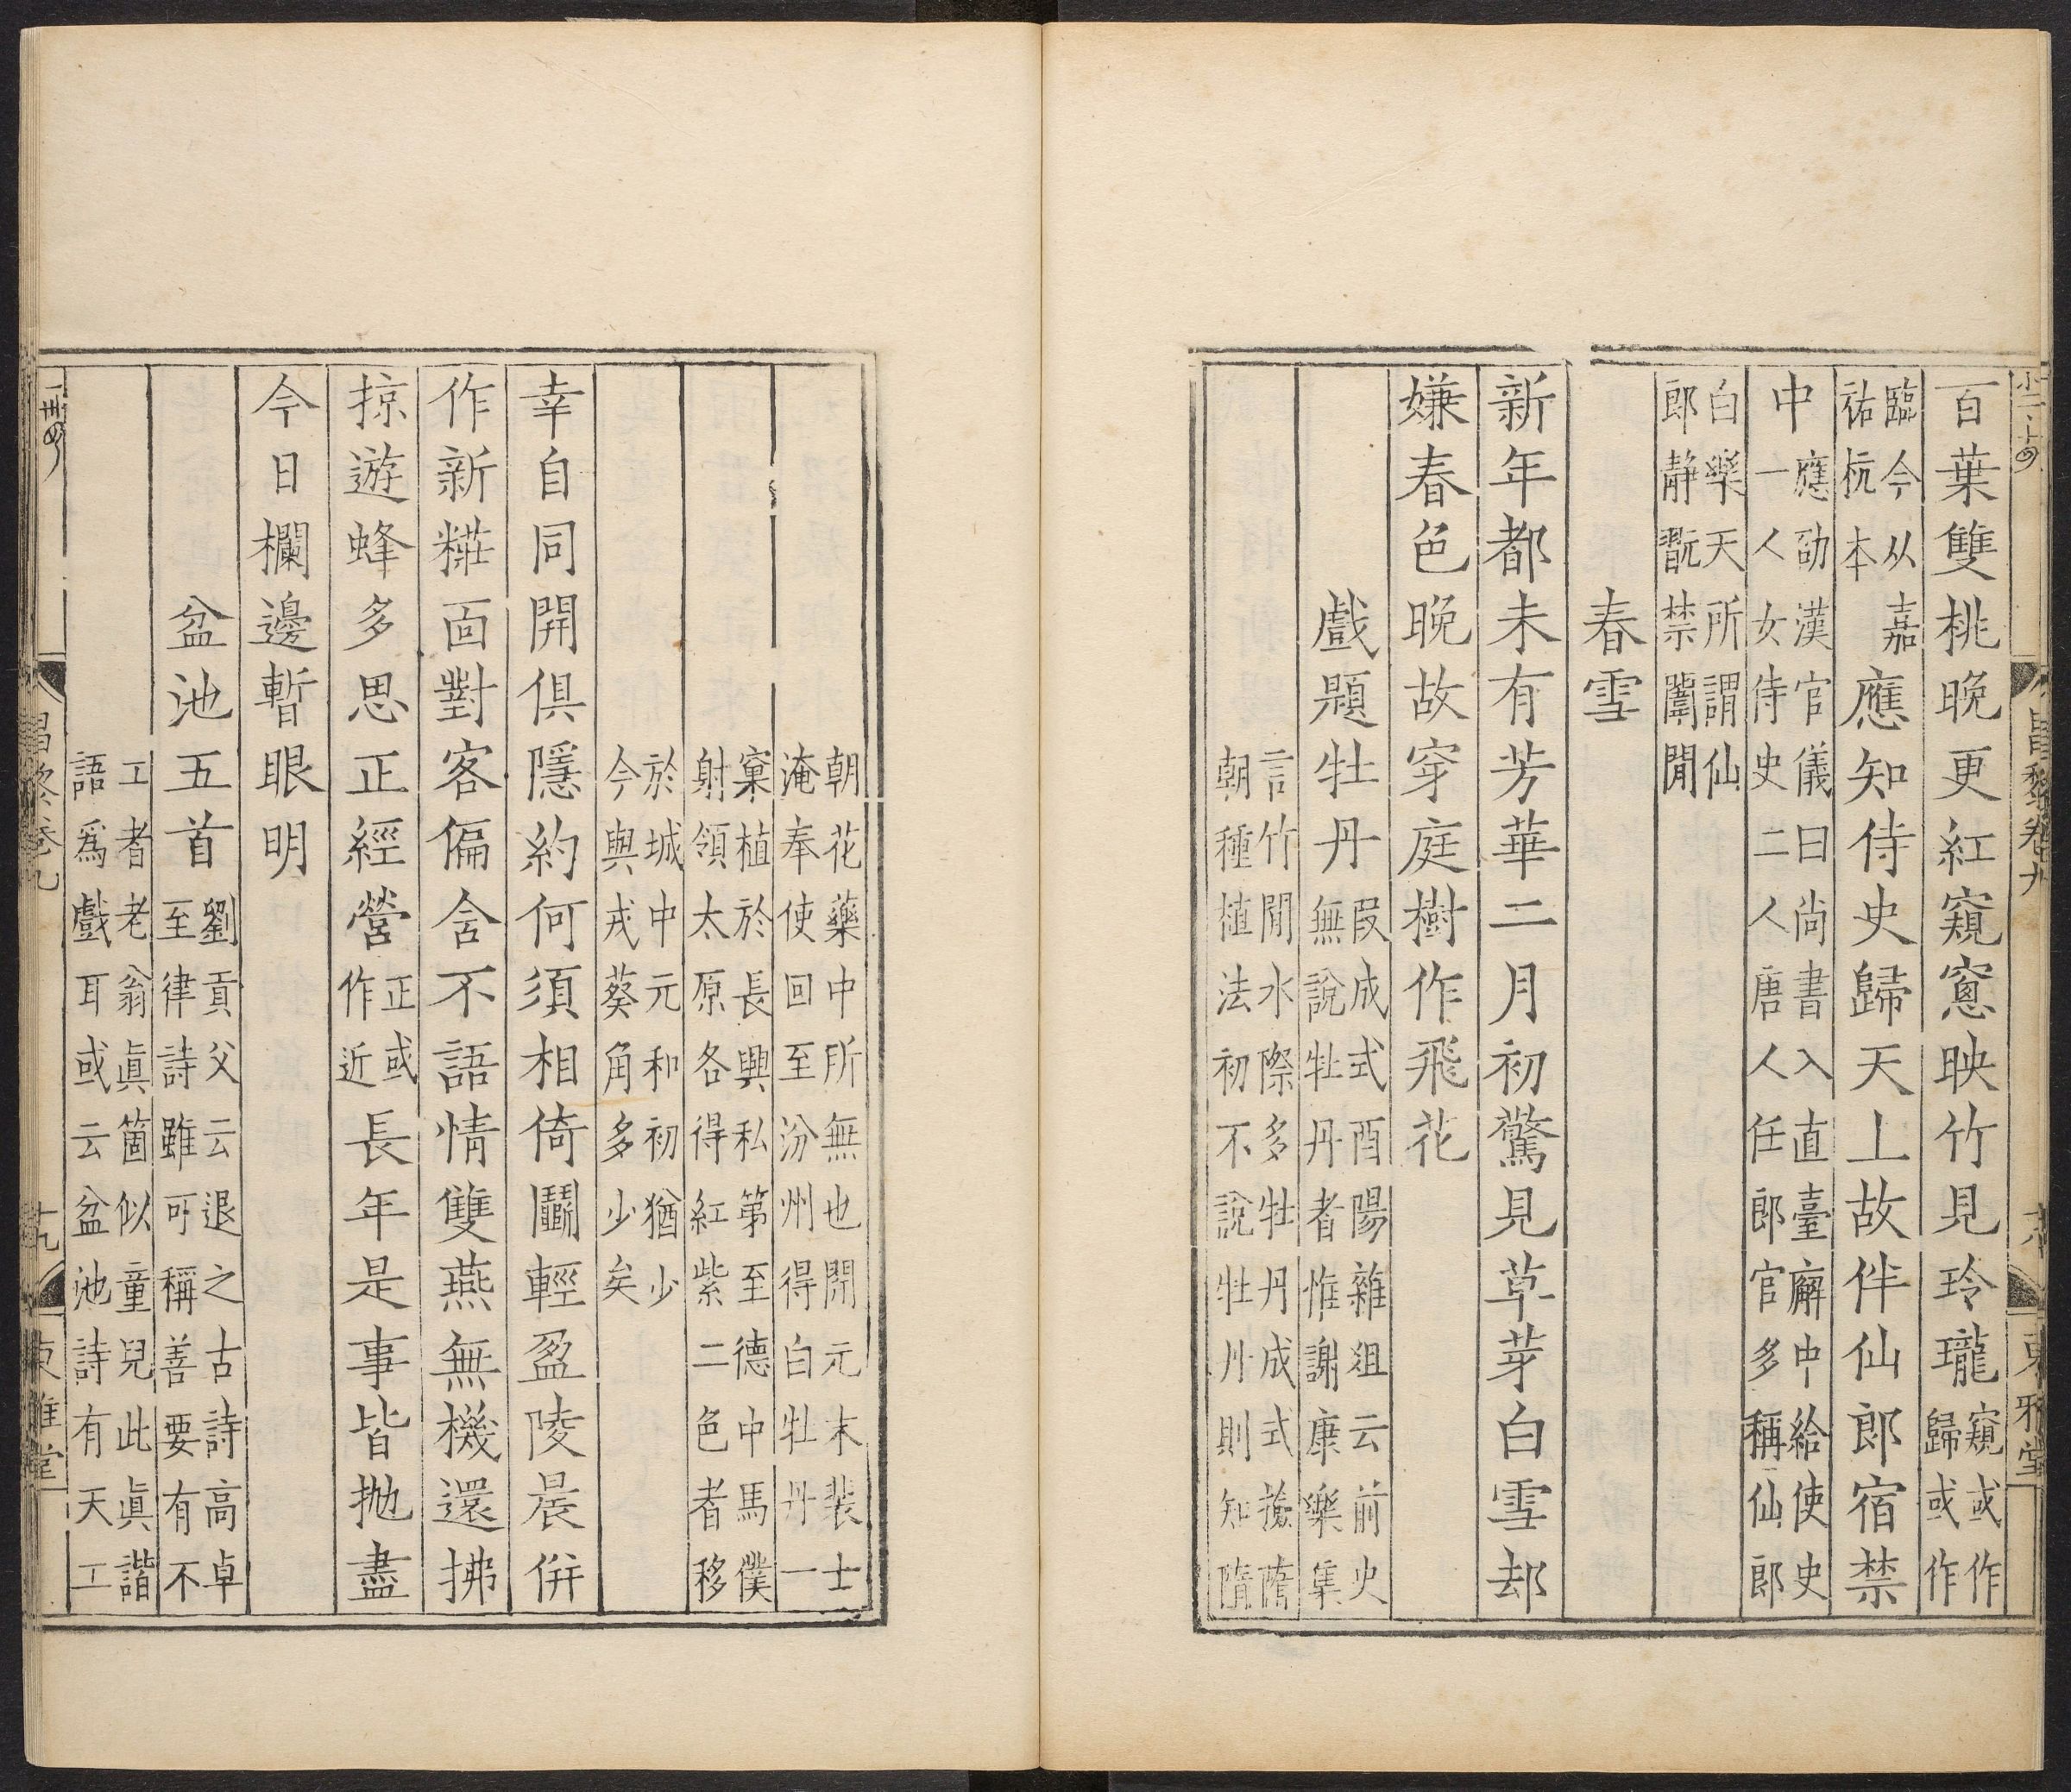 昌黎卷九
東雅堂
百葉雙桃晚更紅窺窻映竹見玲瓏窺或作歸或作
臨今从嘉祐杭本應知侍史歸天上故伴仙郎宿禁
中應劭漢官儀曰尚書入直臺廨中給使史一人女侍史二人唐人任郎官多稱仙郎
白樂天所謂仙郎靜翫禁闈閒
春雪
新年都未有芳華二月初驚見草芽白雪却
嫌春色晚故穿庭樹作飛花
戲題牡丹叚成式酉陽雜俎云前史無說牡丹者惟謝康樂集
言竹閒水際多牡丹成式撿隋朝種植法初不說牡丹則知隋
朝花藥中所無也開元末裴士淹奉使回至汾州得白牡丹一
窠植於長興私第至德中馬僕射領太原各得紅紫二色者移
於城中元和初猶少今與戎葵角多少矣
幸自同開俱隱約何須相倚鬬輕盈陵晨併
作新糚面對客偏含不語情雙燕無機還拂
掠遊蜂多思正經營正或作近長年是事皆抛盡
今日欄邊暫眼明
盆池五首劉貢父云退之古詩高卓至律詩雖可稱善要有不
工者老翁眞箇似童兒此眞諧語爲戲耳或云盆池詩有天工
昌黎卷九
十九
東雅堂